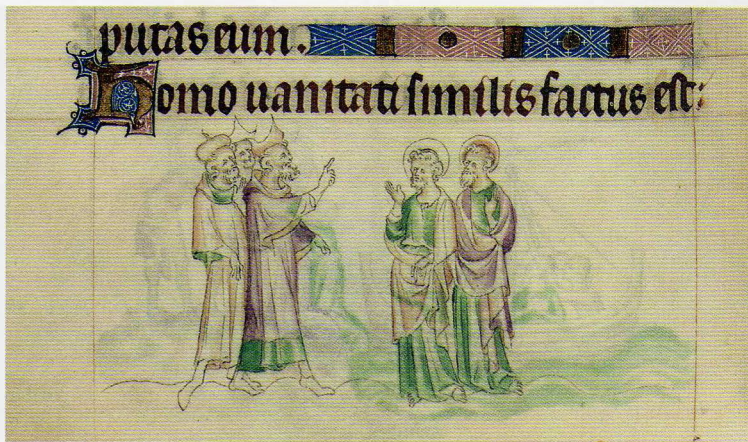 putas eum.
Homo uanitati similis factus est: